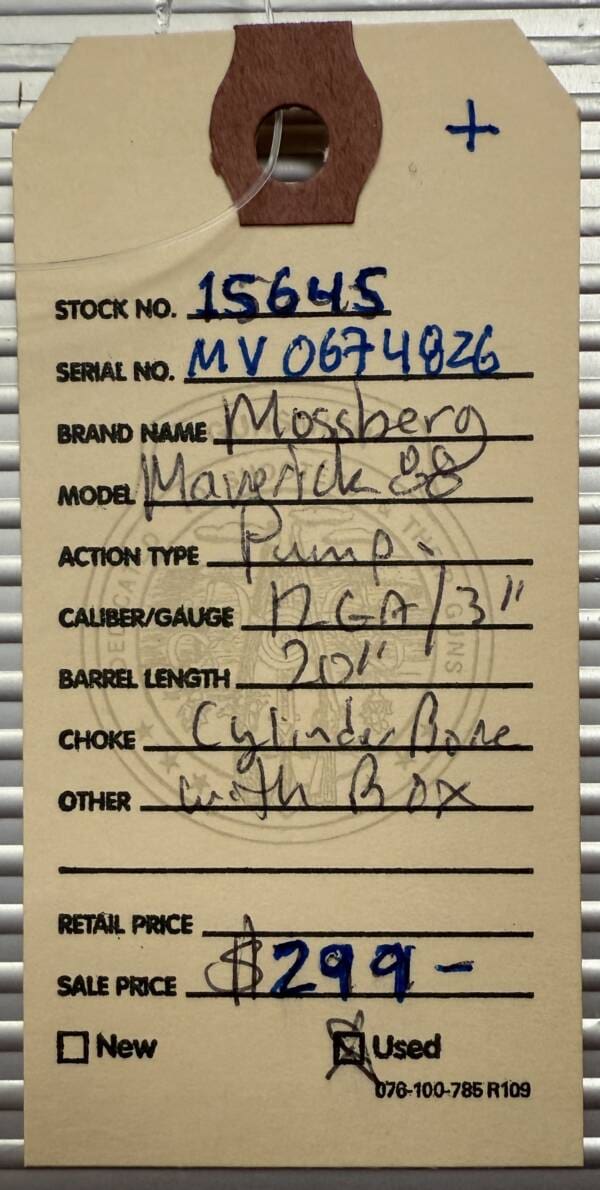 +
STOCK NO. 15645
SERIAL NO. MV0674826
BRAND NAME Mossberg
MODEL Maverick 88
ACTION TYPE Pump
CALIBER/GAUGE 12GA/3"
BARREL LENGTH 20"
CHOKE Cylinder Bore
OTHER with Box
RETAIL PRICE
SALE PRICE $299-
New Used
076-100-785 R109